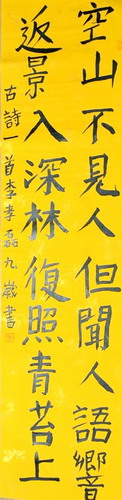 空山不見人但聞人語響
返景入深林復照青苔上
古詩一首李孝磊九歲書